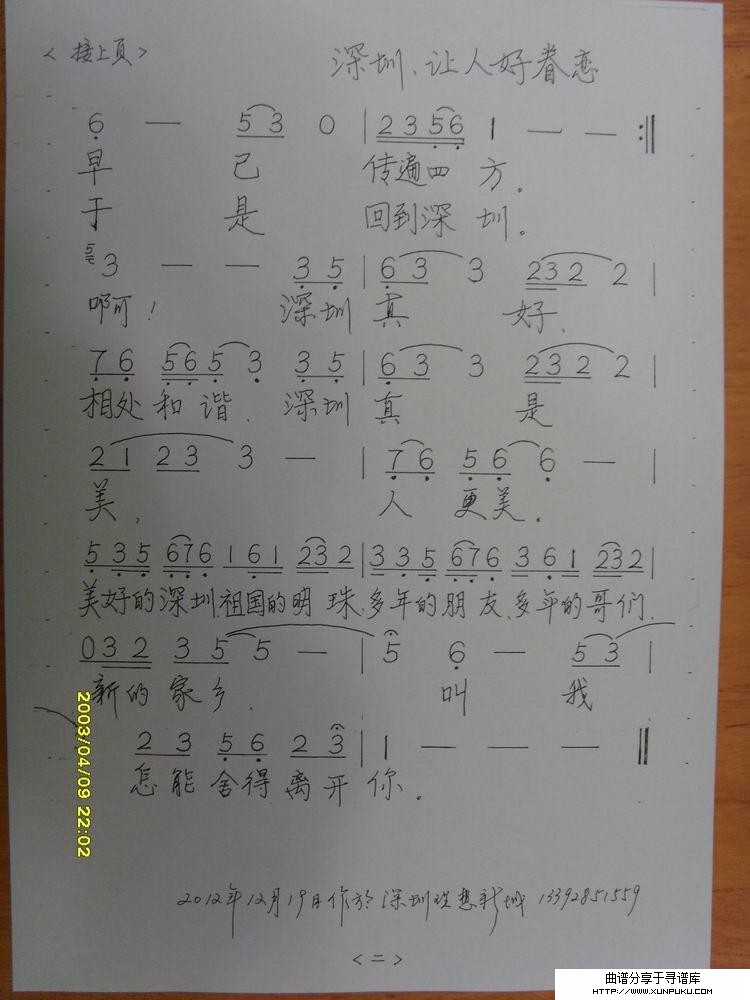 <接上页> 深圳、让人好眷恋
6 — 5 3 0 | 2 3 5 6 1 — — :||
早 已 传遍四 方。
于 是 回到深 圳。
5 3 — — 3 5 | 6 3 3 2 3 2 2 |
啊! 深圳 真 好,
7 6 5 6 5 3 3 5 | 6 3 3 2 3 2 2 |
相处 和 谐、 深圳 真 是
2 1 2 3 3 — | 7 6 5 6 6 — |
美, 人 更美。
5 3 5 6 7 6 1 6 1 2 3 2 | 3 3 5 6 7 6 3 6 1 2 3 2 |
美好的深圳,祖国的明 珠,多年的朋 友,多年的哥们,
0 3 2 3 5 5 — | 5 6 — 5 3 |
新的 家乡, 叫 我
2 3 5 6 2 3 | 1 — — — ||
怎能 舍得 离开 你。
2003/04/09 22:02
2012年12月19日作於深圳理想新城 13392851559
<二>
曲谱分享于寻谱库
HTTP://WWW.XUNPUKU.COM